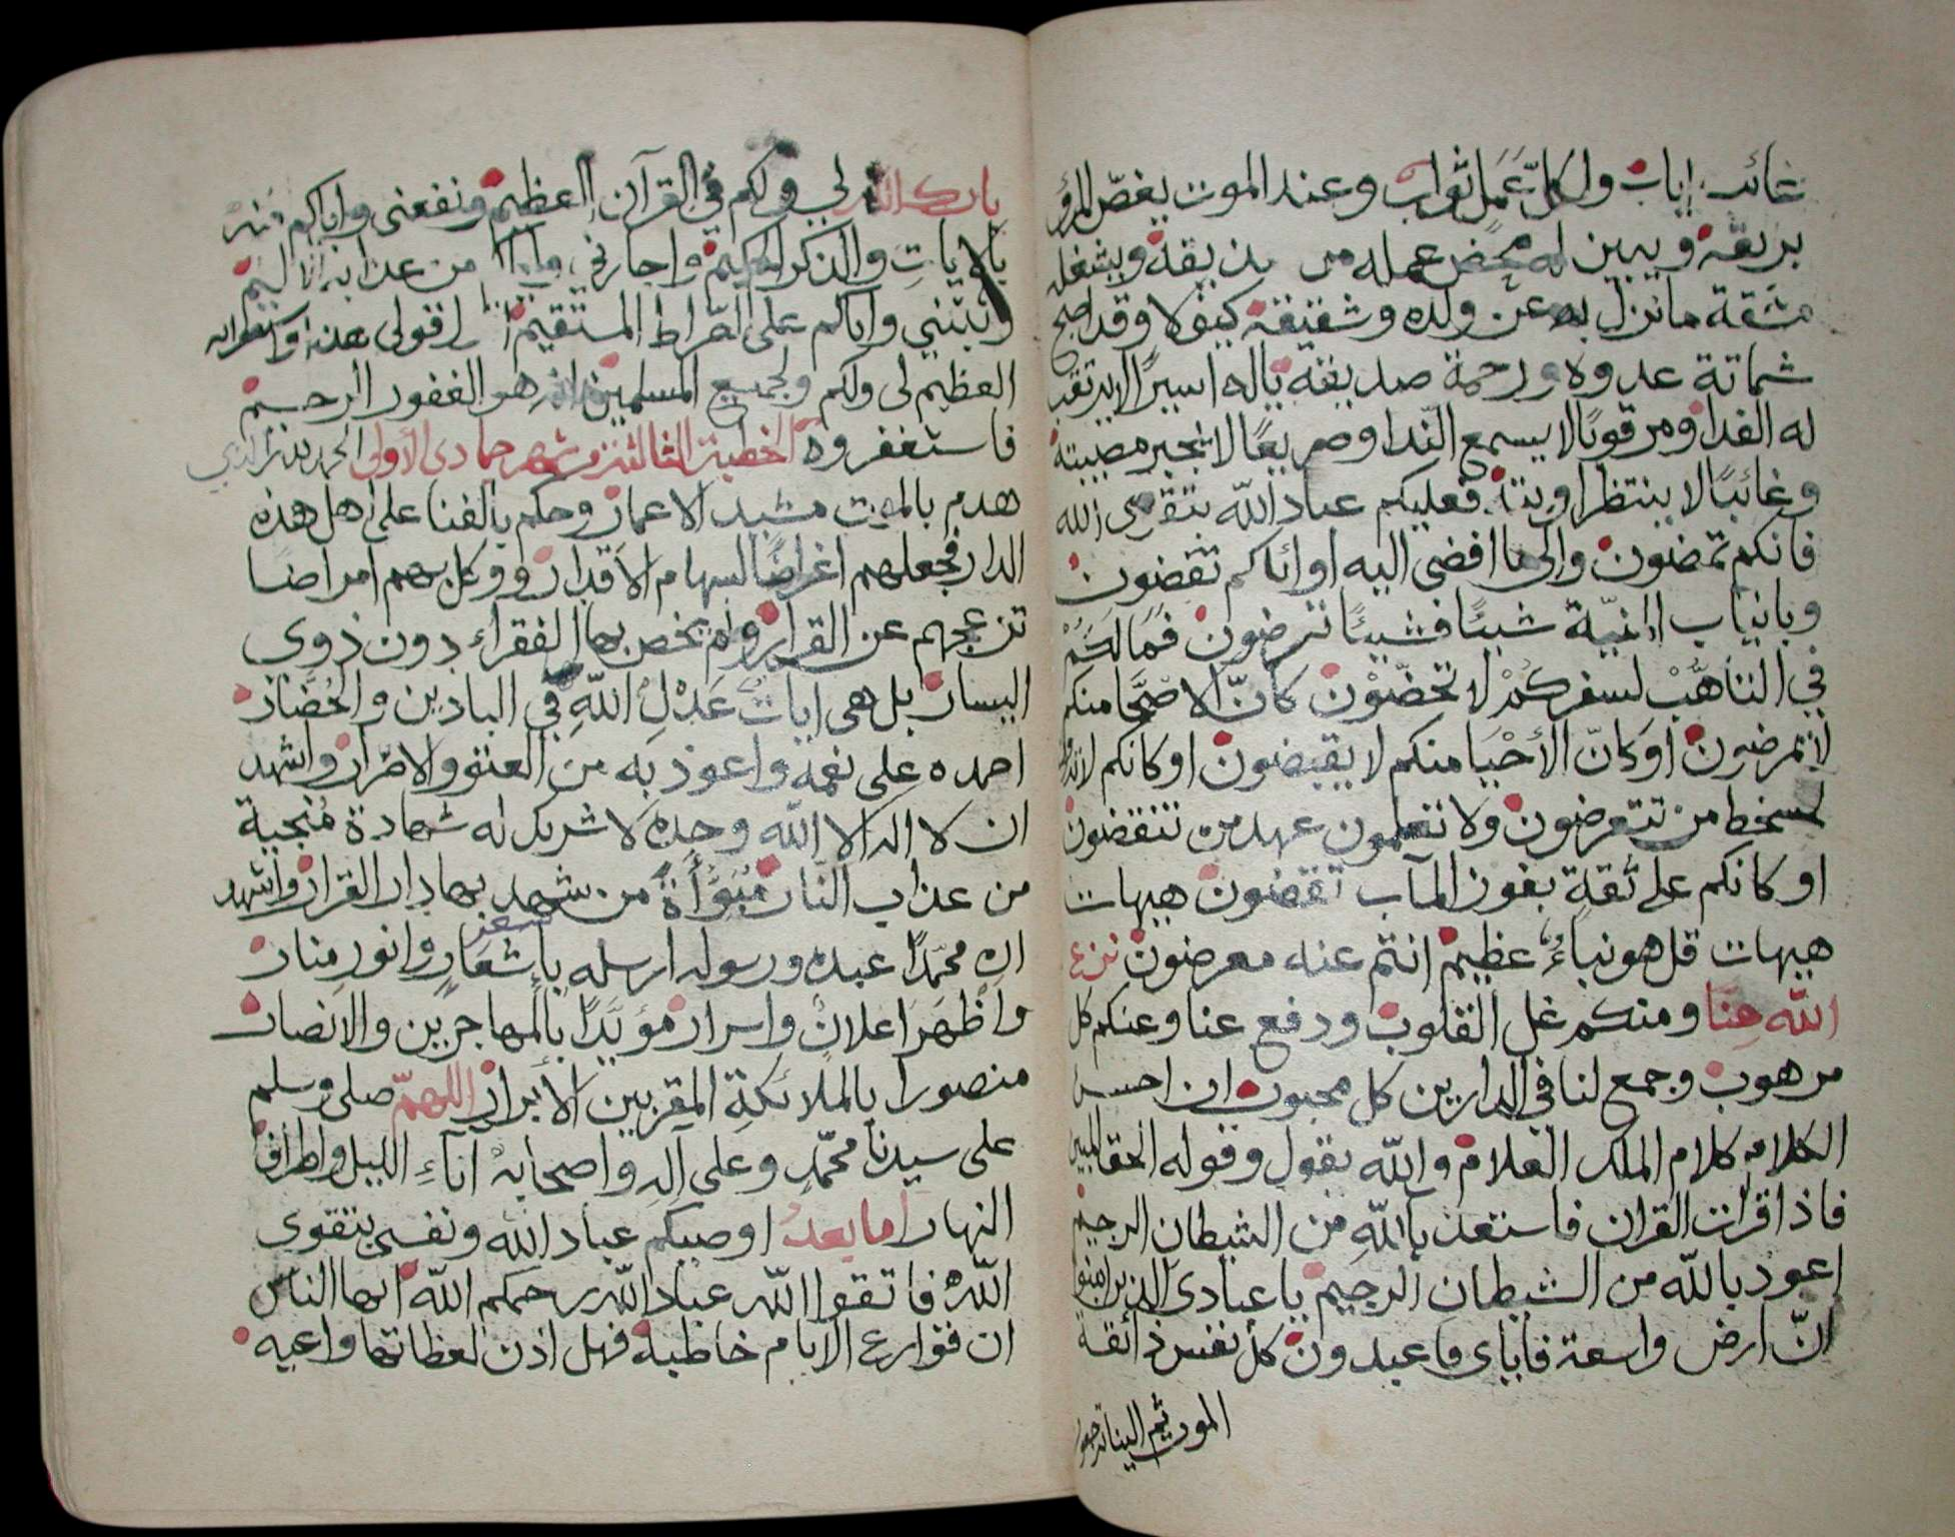 غائب اياب ولكل عمل ثواب وعند الموت يغص المرؤ
بريقه ويبين له محض عمله من ويشغله
مشقة ما نزل به عن ولده وشقيقه كيف لا وقد اصبح
شماتة عدوه ورحمة صديقه ياله اسيرًا لا يرتقب
له الفدا ومرقوبًا لا يسمع الندا وصريعًا لا تجبر مصيبته
وغائبًا لا ينتظر اوبته فعليكم عباد الله بتقوى الله
فانكم تمضون والى ما افضى اليه اوائلكم تفضون
وبانياب المنيّة شيئًا فشيئًا ترضون فمالكم
في التأهب لسفركم لا تحضّون كانّ الاصحّا منكم
لا يمرضون او كانّ الأحيا منكم لا يقبضون او كانكم لا
لسخط من تتعرضون ولا تعلمون عهد من تنقضون
او كانكم على ثقة بفوز المآب تقضون هيهات
هيهات قل هو نباءٌ عظيم انتم عنه معرضون نزع
الله عنا ومنكم غل القلوب ودفع عنا وعنكم كل
مرهوب وجمع لنا في الدارين كل محبوب ان احسن
الكلام كلام الملك العلام والله يقول وقوله الحق المبين
فاذا قرات القران فاستعذ بالله من الشيطان الرجيم
اعوذ بالله من الشيطان الرجيم يا عبادى الذين امنوا
انّ ارض واسعة فاياى فاعبدون كل نفس ذائقة
الموت ثم الينا ترجعون
بارك الله لي ولكم في القرآن العظيم ونفعنى واياكم منه
بالايات والذكر الحكيم واجارني واياكم من عذابه الاليم
وثبتني واياكم على الصراط المستقيم اقولى هذا واستغفر الله
العظيم لى ولكم ولجميع المسلمين انه هو الغفور الرحيم
فاستغفروه الخطبة الثالثة من شهر جمادى الأولى الحمد لله الذي
هدم بالموت مشيد الاعمار وحكم بالفنا على اهل هذه
الدار فجعلهم اغراضًا لسهام الاقدار ووكل بهم امراضا
تزعجهم عن القرار ولم يخص بها الفقراء دون ذوى
اليسار بل هى ايات عَدْلِ الله في البادين والحُضّار
احمده على نعمه واعوذ به من العتو والاصّرار واشهد
ان لا اله الا الله وحده لا شريك له شهادة مُنجية
من عذاب النار مُبَوُّأَةً من شهد بها دار القرار واشهد
ان محمّدًا عبده ورسوله ارسله باشعار وانور منار
واظهر اعلان واسرار مؤيّدًا بالمهاجرين والانصار
منصورا بالملائكة المقربين الأبرار اللهمّ صلى وسلم
على سيدنا محمّد وعلى آله واصحابه آناءِ الليل واطراف
النهار اما بعد اوصيكم عباد الله ونفسى بتقوى
الله فاتقوا الله عباد الله رحمكم الله ايها الناس
ان قوارع الايام خاطبة فهل اذن لعظاتها واعيه